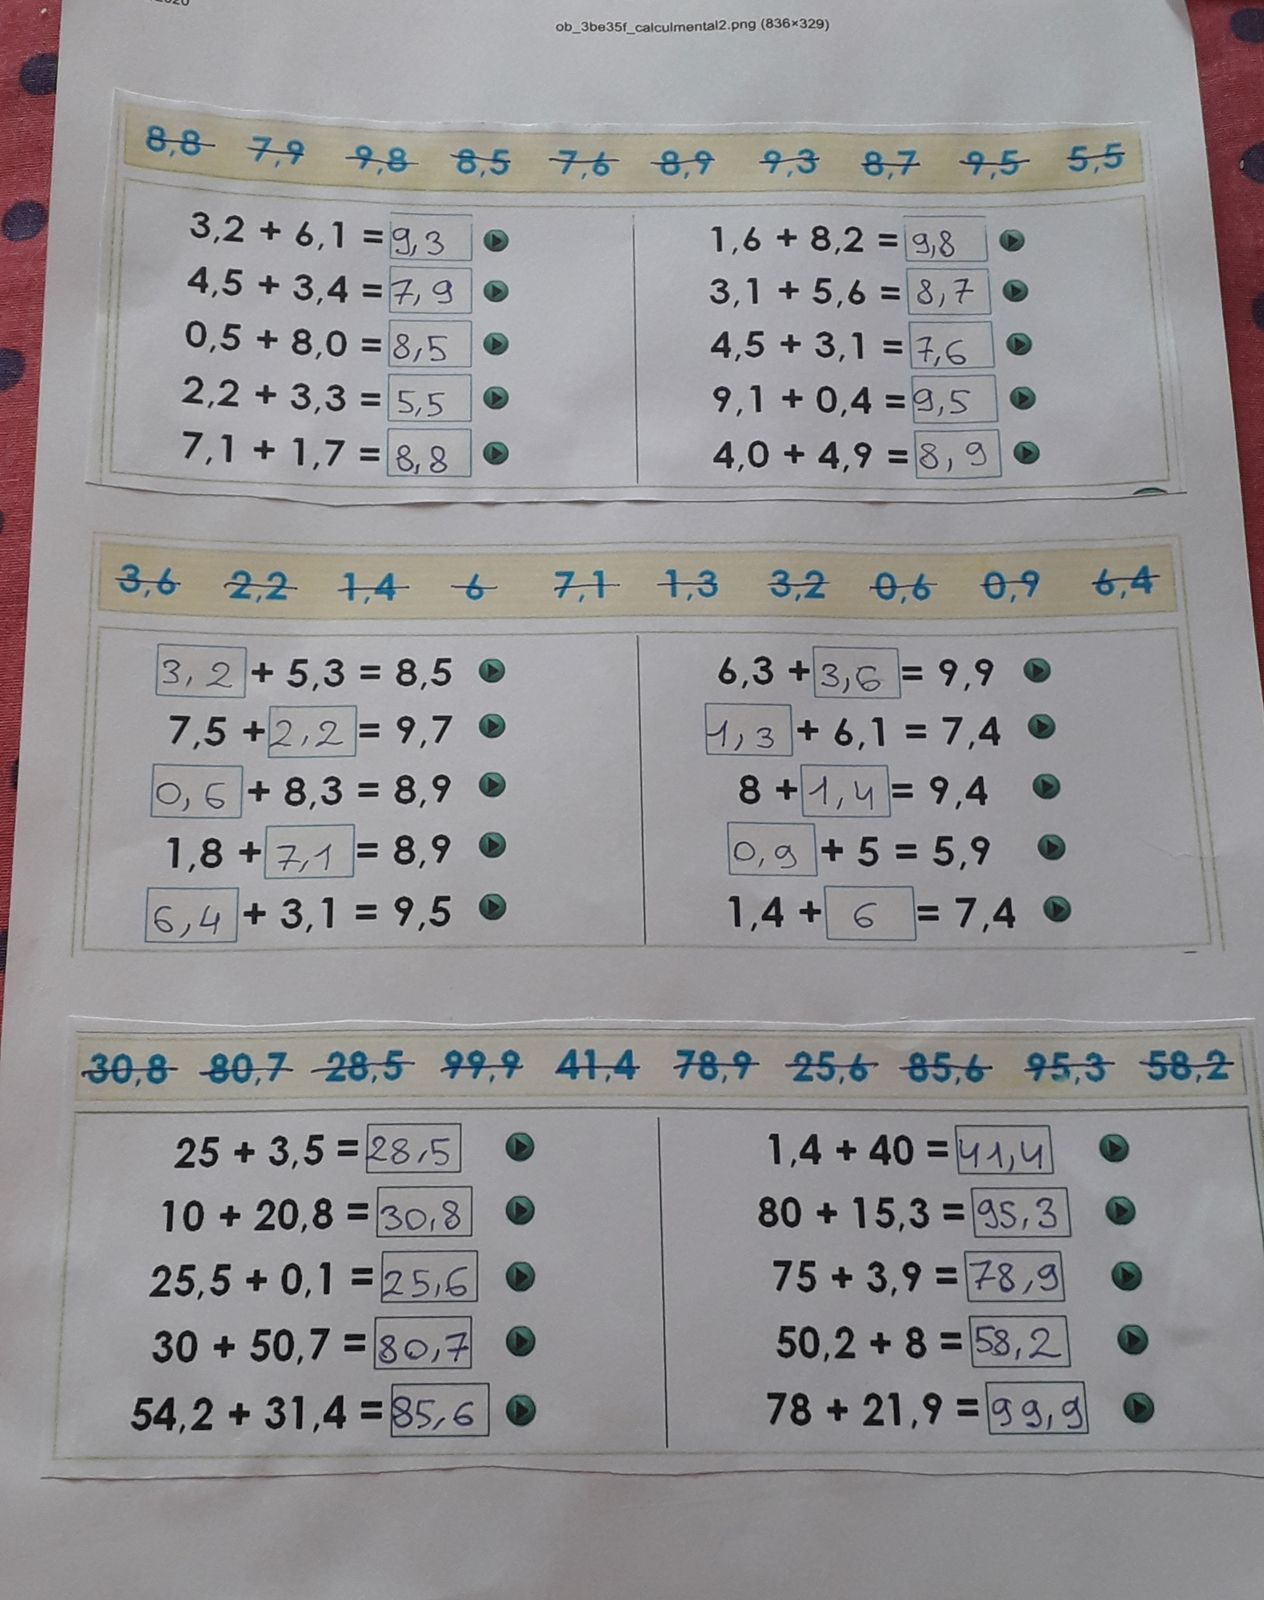 ob_3be35f_calculmental2.png (836×329)
8,8 7,9 9,8 8,5 7,6 8,9 9,3 8,7 9,5 5,5
3,2 + 6,1 = 9,3
4,5 + 3,4 = 7,9
0,5 + 8,0 = 8,5
2,2 + 3,3 = 5,5
7,1 + 1,7 = 8,8
1,6 + 8,2 = 9,8
3,1 + 5,6 = 8,7
4,5 + 3,1 = 7,6
9,1 + 0,4 = 9,5
4,0 + 4,9 = 8,9
3,6 2,2 1,4 6 7,1 1,3 3,2 0,6 0,9 6,4
3,2 + 5,3 = 8,5
7,5 + 2,2 = 9,7
0,6 + 8,3 = 8,9
1,8 + 7,1 = 8,9
6,4 + 3,1 = 9,5
6,3 + 3,6 = 9,9
1,3 + 6,1 = 7,4
8 + 1,4 = 9,4
0,9 + 5 = 5,9
1,4 + 6 = 7,4
30,8 80,7 28,5 99,9 41,4 78,9 25,6 85,6 95,3 58,2
25 + 3,5 = 28,5
10 + 20,8 = 30,8
25,5 + 0,1 = 25,6
30 + 50,7 = 80,7
54,2 + 31,4 = 85,6
1,4 + 40 = 41,4
80 + 15,3 = 95,3
75 + 3,9 = 78,9
50,2 + 8 = 58,2
78 + 21,9 = 99,9